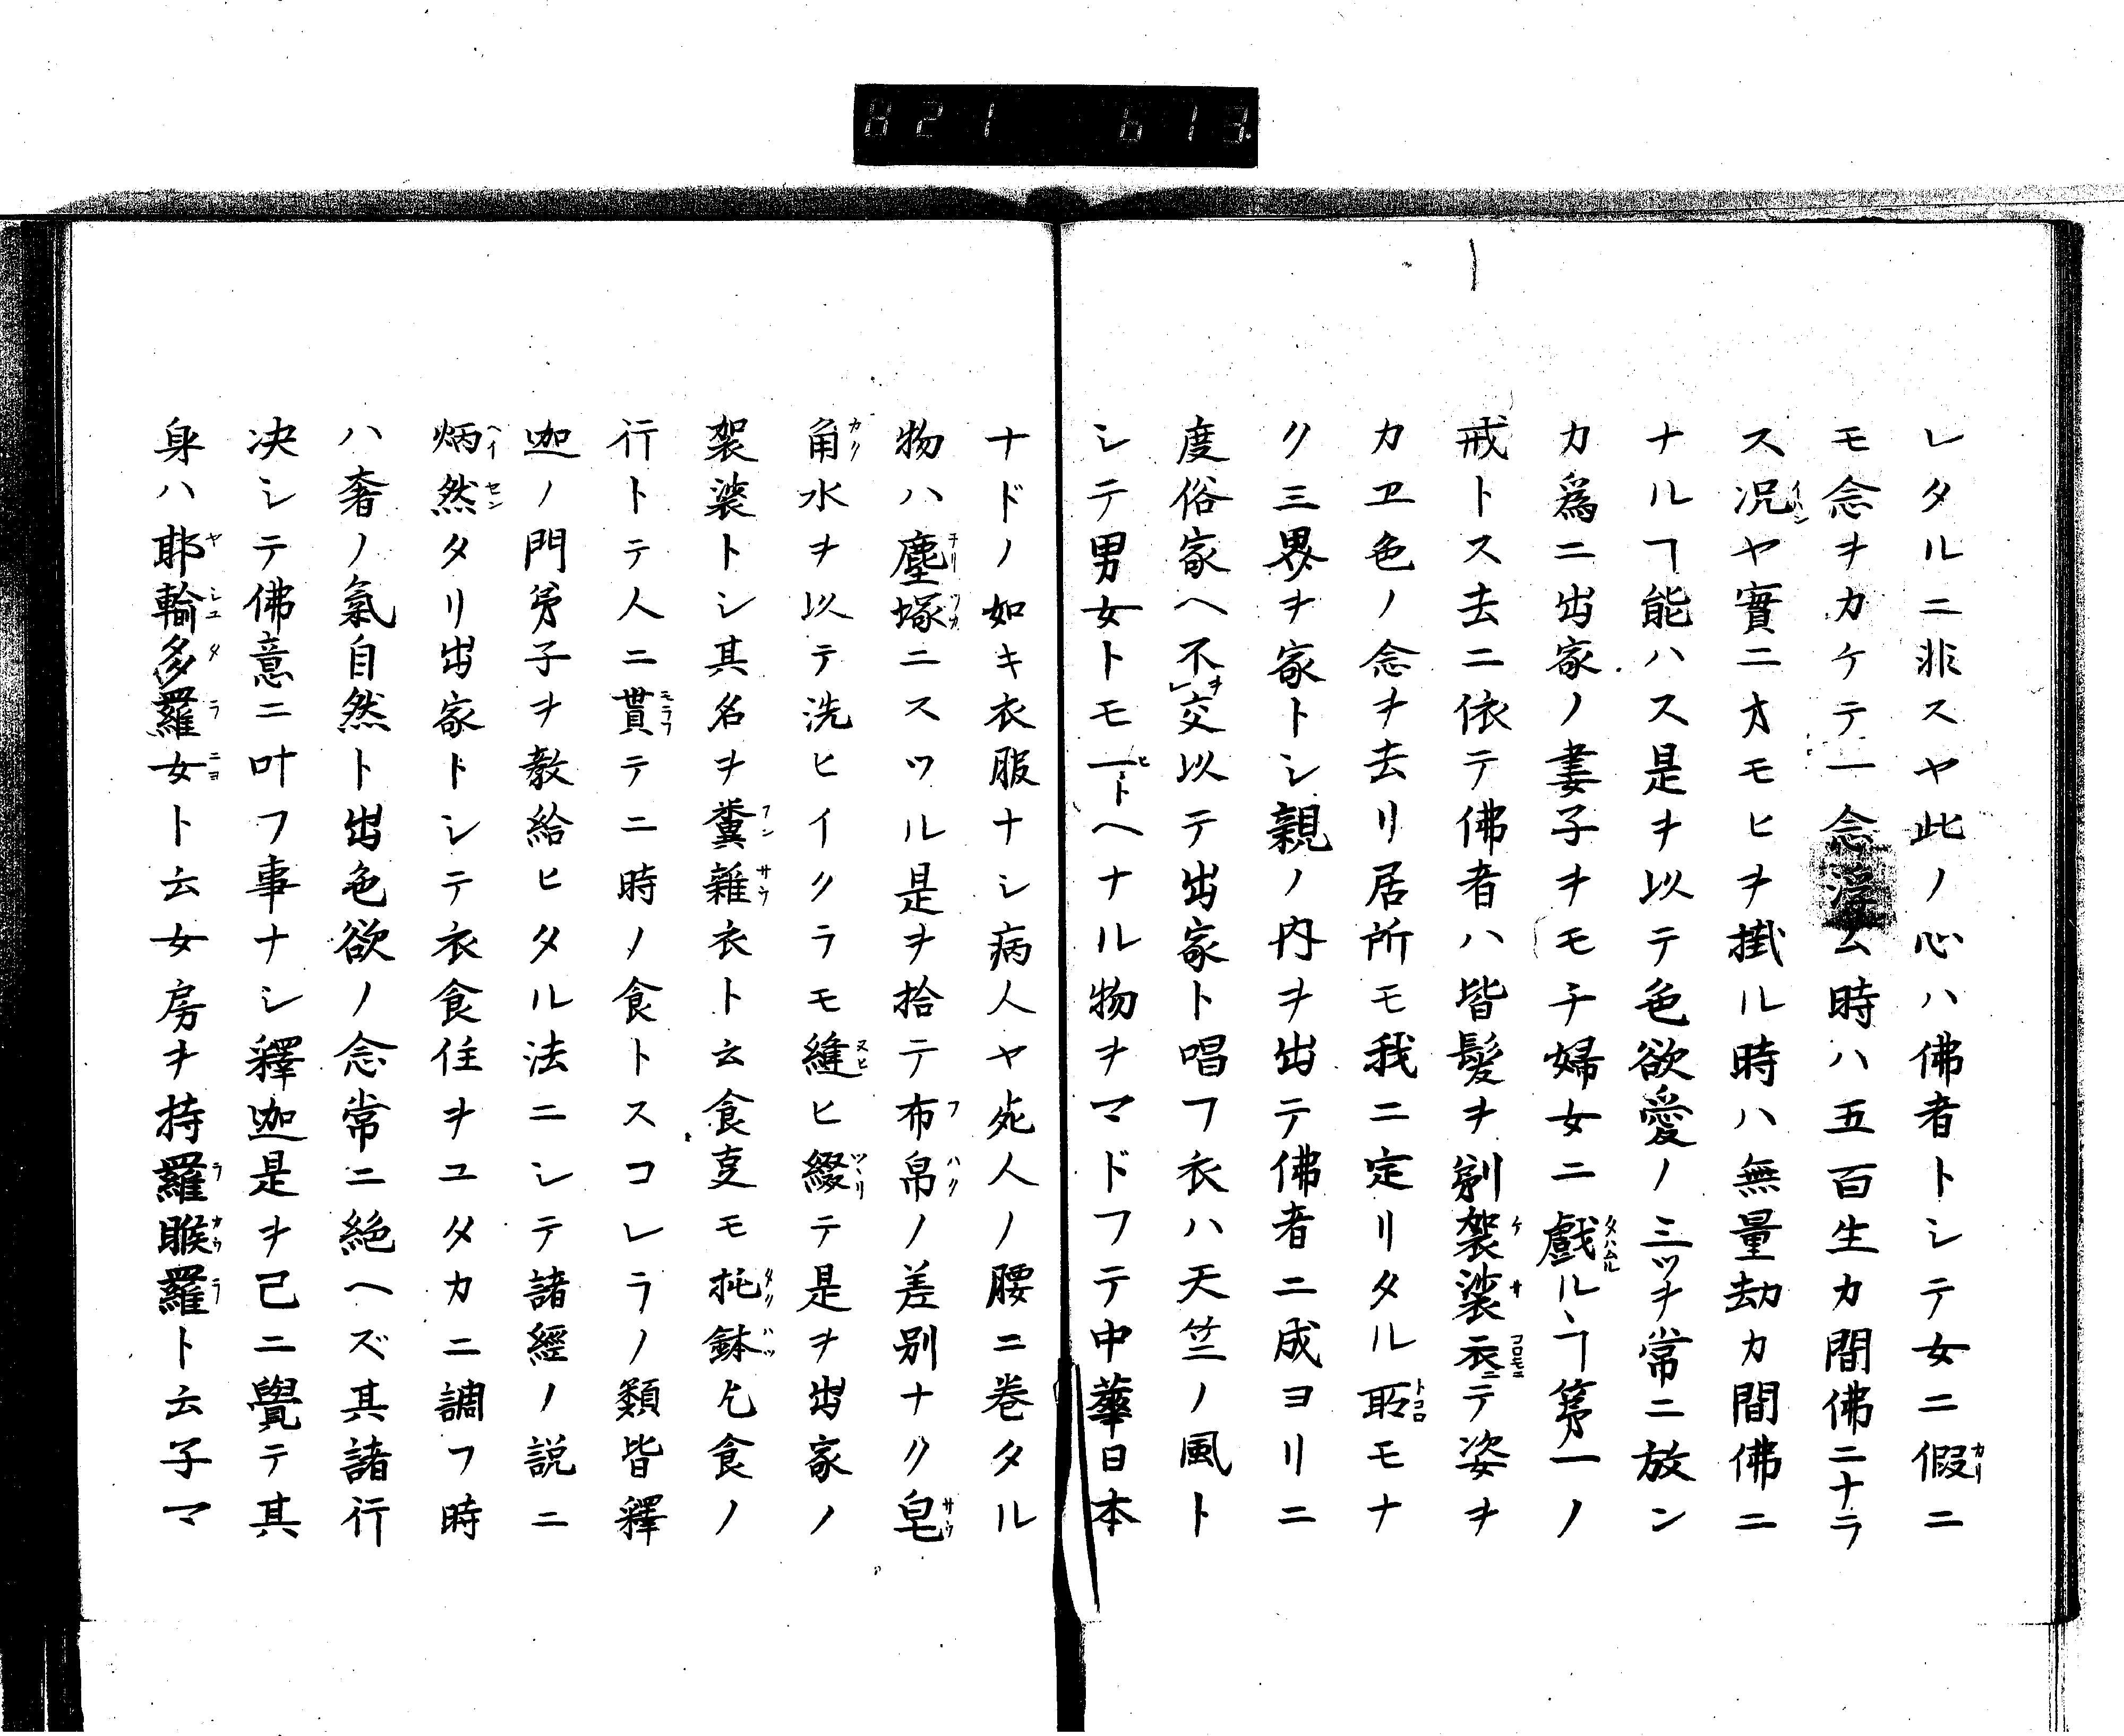 821 613
レタルニ非スヤ此ノ心ハ佛者トシテ女ニ假ニ
モ念ヲカケテ一念浮ム時ハ五百生カ間佛ニナラ
ス况ヤ實ニオモヒヲ掛ル時ハ無量劫カ間佛ニ
ナルヿ能ハス是ヲ以テ色欲愛ノ三ツヲ常ニ放ン
カ爲ニ出家ノ妻子ヲモチ婦女ニ戲ルヽヿ第一ノ
戒トス去ニ依テ佛者ハ皆髮ヲ剃袈裟衣ニテ姿ヲ
カヱ色ノ念ヲ去リ居所モ我ニ定リタル所モナ
ク三界ヲ家トシ親ノ内ヲ出テ佛者ニ成ヨリニ
度俗家ヘ不交ヲ以テ出家ト唱フ衣ハ天竺ノ風ト
シテ男女トモ一トヘナル物ヲマドフテ中華日本
ナドノ如キ衣服ナシ病人ヤ死人ノ腰ニ巻タル
物ハ塵塚ニスツル是ヲ拾テ布帛ノ差别ナク皂
角水ヲ以テ洗ヒイクラモ縫ヒ綴テ是ヲ出家ノ
袈裟トシ其名ヲ糞雜衣ト云食事モ托鉢乞食ノ
行トテ人ニ貰テ二時ノ食トスコレラノ類皆釋
迦ノ門弟子ヲ教給ヒタル法ニシテ諸經ノ説ニ
炳然タリ出家トシテ衣食住ヲユタカニ調フ時
ハ奢ノ氣自然ト出色欲ノ念常ニ絶ヘズ其諸行
决シテ佛意ニ叶フ事ナシ釋迦是ヲ己ニ覺テ其
身ハ耶輸多羅女ト云女房ヲ持羅睺羅ト云子マ